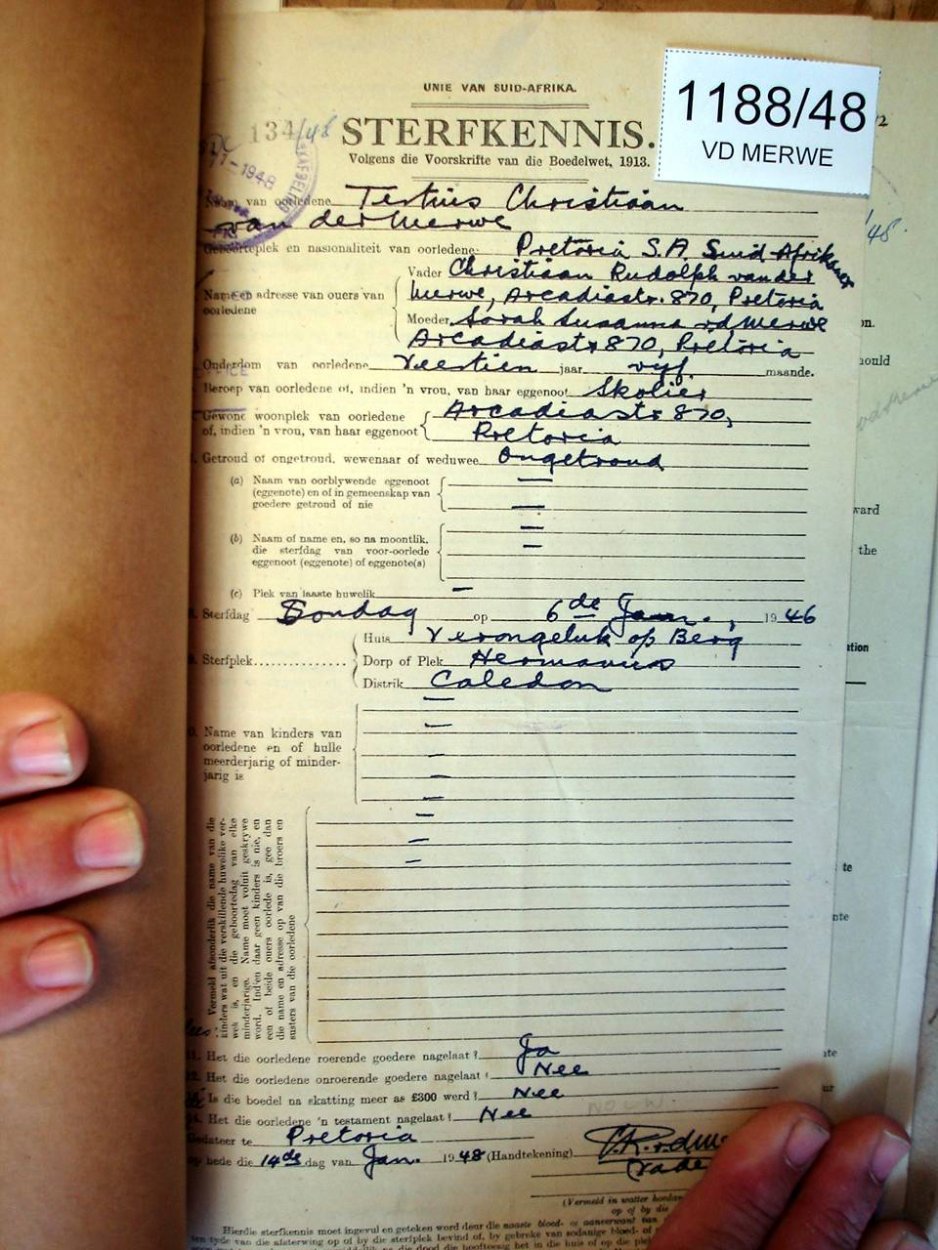 1188/48
VD MERWE
UNIE VAN SUID-AFRIKA.
134/48
STERFKENNIS.
Volgens die Voorskrifte van die Boedelwet, 1913.
-1948
Naam van oorledene Tertius Christiaan
van der Merwe
Geboorteplek en nasionaliteit van oorledene: Pretoria S.A. Suid-Afrikaner
Name en adresse van ouers van oorledene
Vader Christiaan Rudolph van der
Merwe, Arcadiastr. 870, Pretoria
Moeder Sarah Susanna vd Merwe
Arcadiastr 870, Pretoria
Onderdom van oorledene Veertien jaar vyf maande.
Beroep van oorledene of, indien 'n vrou, van haar eggenoot Skolier
Gewone woonplek van oorledene
of, indien 'n vrou, van haar eggenoot
Arcadiastr 870,
Pretoria
Getroud of ongetroud, wewenaar of weduwee Ongetroud
(a) Naam van oorblywende eggenoot
(eggenote) en of in gemeenskap van
goedere getroud of nie
(b) Naam of name en, so na moontlik,
die sterfdag van voor-oorlede
eggenoot (eggenote) of eggenote(s)
(c) Plek van laaste huwelik
Sterfdag Sondag op 6de Jan., 1946
Sterfplek
Huis Verongeluk op Berg
Dorp of Plek Hermanus
Distrik Caledon
Name van kinders van
oorledene en of hulle
meerderjarig of minder-
jarig is
Vermeld afsonderlik die name van die
kinders wat uit die verskillende huwelike ver-
wek is, en die geboortedag van elke
minderjarige. Name moet voluit geskrywe
word. Indien daar geen kinders is nie, en
een of beide ouers oorlede is, gee dan
die name en adresse op van die broers en
susters van die oorledene
11. Het die oorledene roerende goedere nagelaat? Ja
12. Het die oorledene onroerende goedere nagelaat? Nee
Is die boedel na skatting meer as £300 werd? Nee
14. Het die oorledene 'n testament nagelaat? Nee
Gedateer te Pretoria
op hede die 14de dag van Jan. 1948 (Handtekening) C.R.vdMe
Vade
(Vermeld in watter
op of by die
Hierdie sterfkennis moet ingevul en geteken word deur die naaste bloed- of aanverwant van
ten tyde van die afsterwing op of by die sterfplek bevind of, by gebreke van sodanige bloed- of